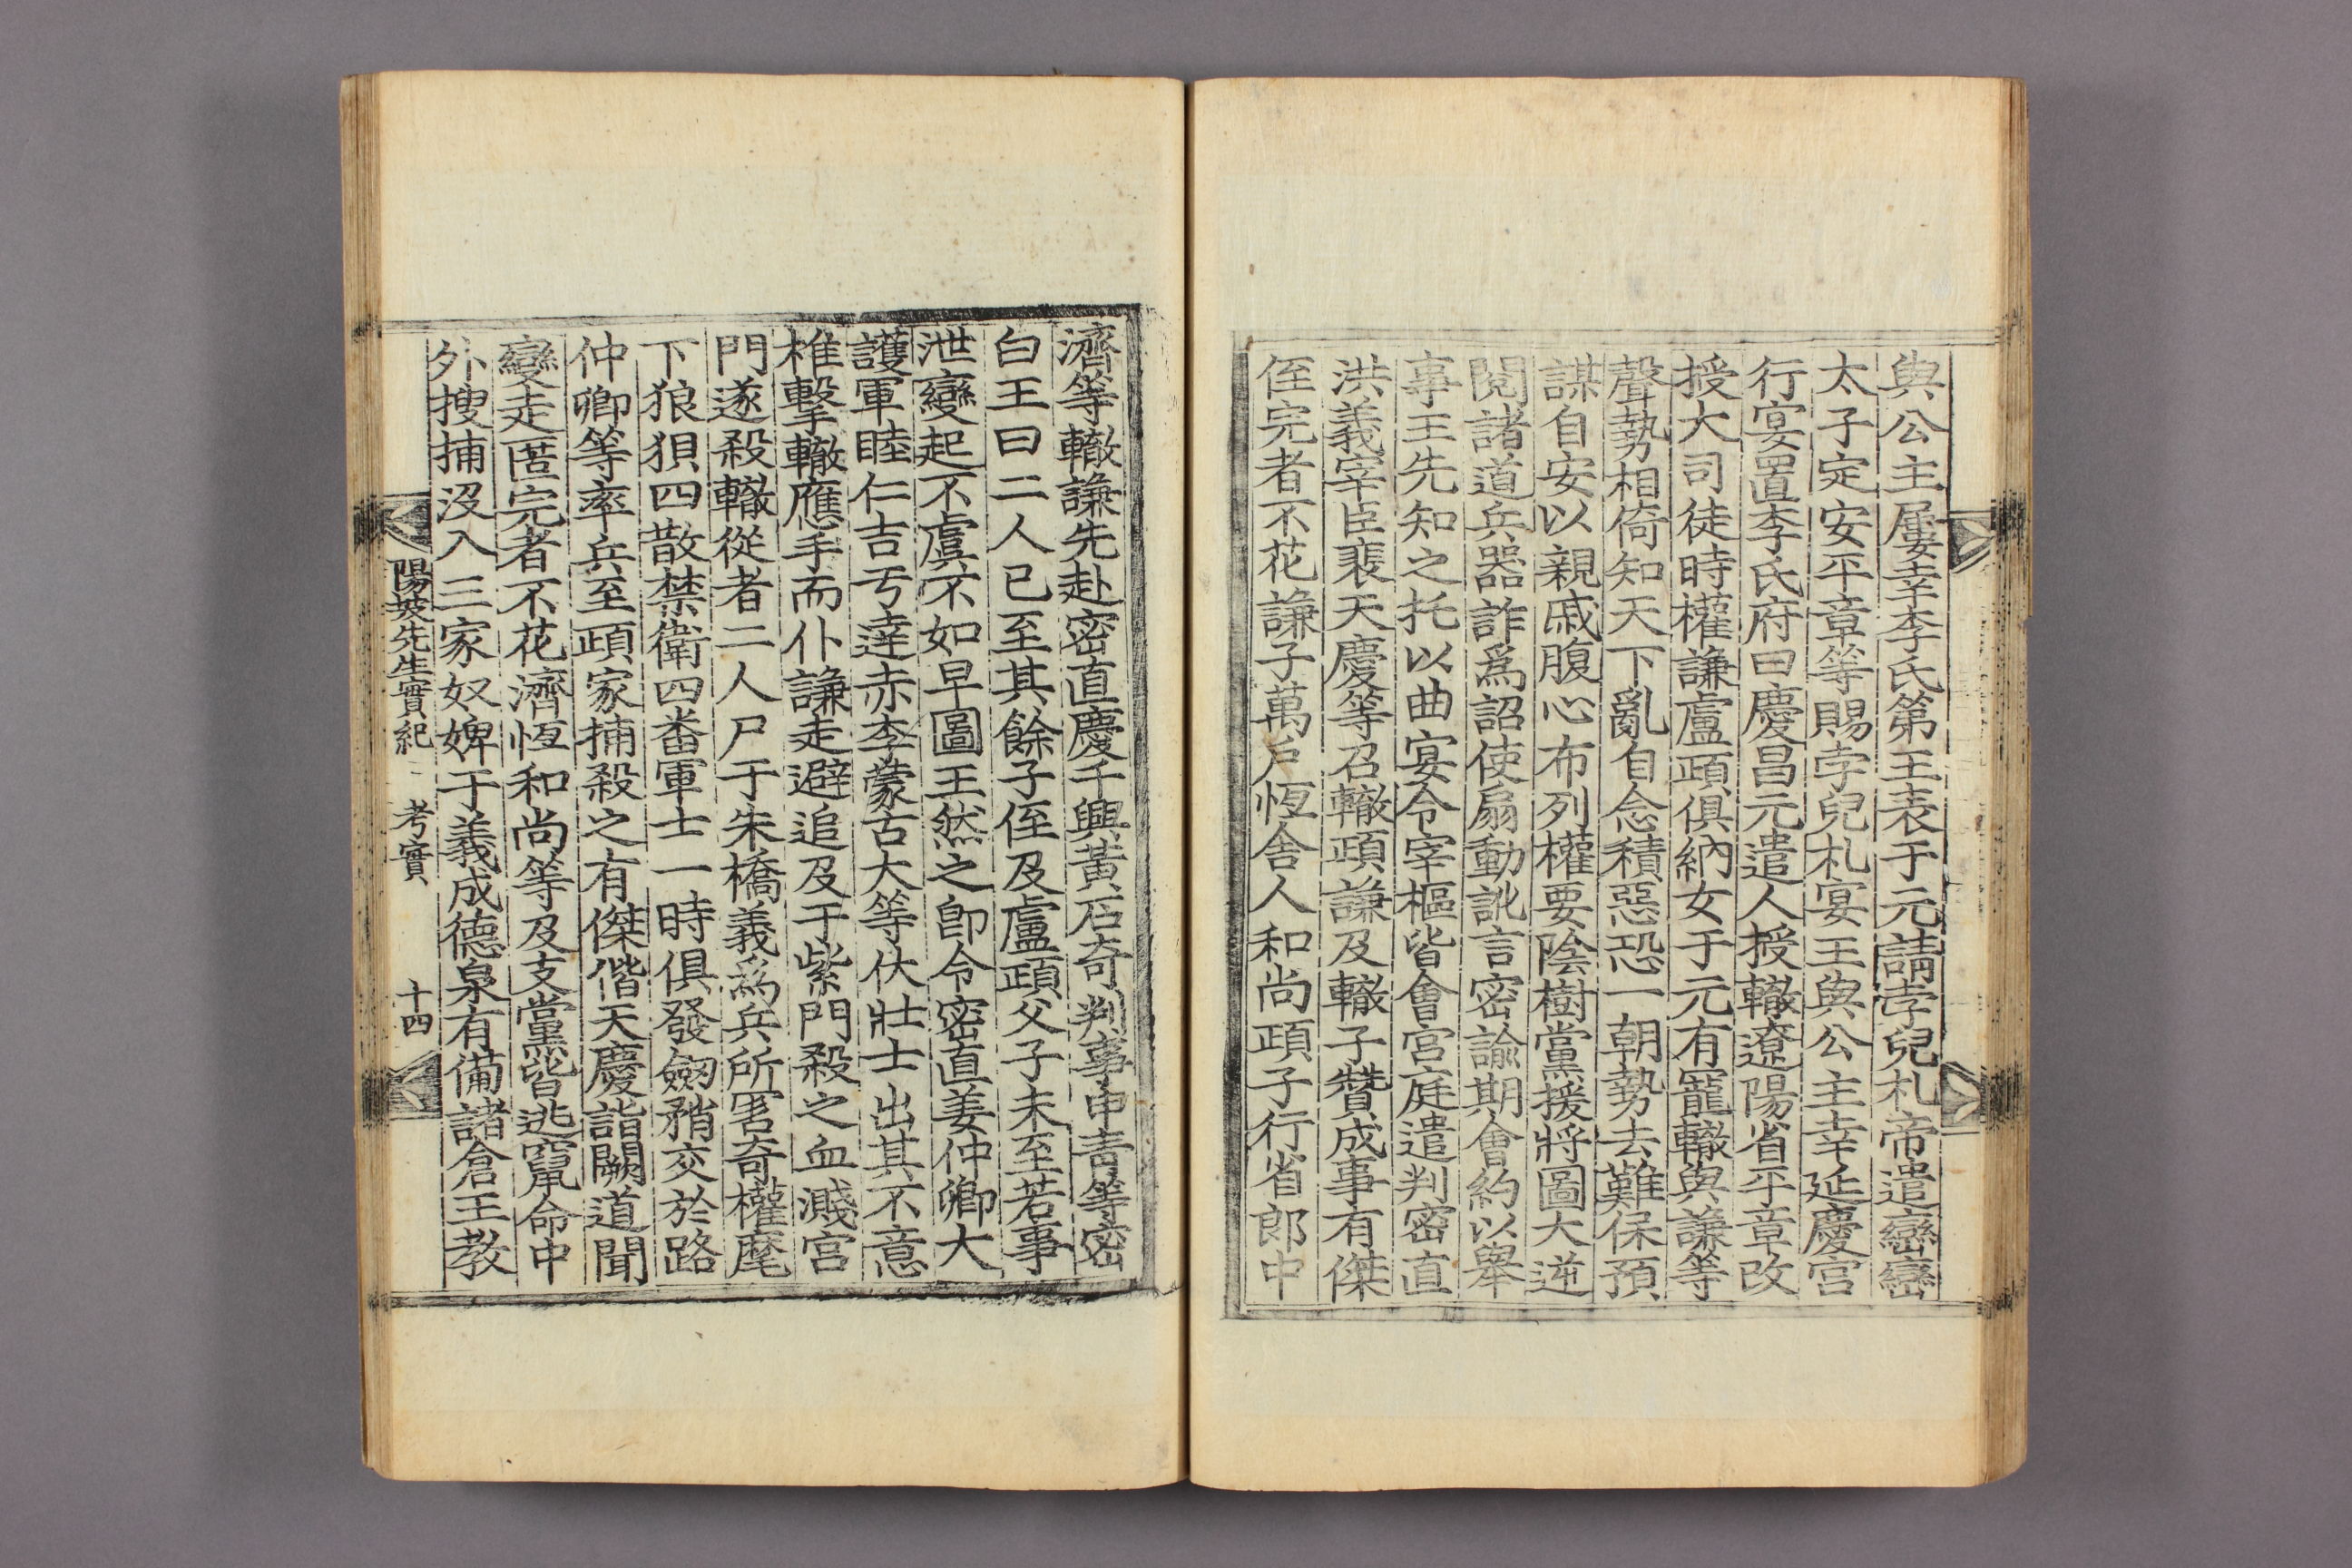 與公主屢幸李氏第王表于元請孛兒札帝遣巒巒
太子定安平章等賜孛兒札宴王與公主幸延慶宮
行宴置李氏府曰慶昌元遣人授轍遼陽省平章改
授大司徒時權謙盧頙俱納女于元有寵轍與謙等
聲勢相倚知天下亂自念積惡恐一朝勢去難保預
謀自安以親戚腹心布列權要陰樹黨援將圖大逆
閱諸道兵器詐爲詔使扇動訛言密諭期會約以舉
事王先知之托以曲宴令宰樞皆會宮庭遣判密直
洪義宰臣裴天慶等召轍頙謙及轍子贊成事有傑
侄完者不花謙子萬戶恆舍人和尚頙子行省郎中
濟等轍謙先赴密直慶千興黃石奇判事申靑等密
白王曰二人已至其餘子侄及盧頙父子未至若事
泄變起不虞不如早圖王然之卽令密直姜仲卿大
護軍睦仁吉于達赤李蒙古大等伏壯士出其不意
椎擊轍應手而仆謙走避追及于紫門殺之血濺宮
門遂殺轍從者二人尸于朱橋義爲兵所害奇權麾
下狼狽四散禁衛四番軍士一時俱發劒矟交於路
仲卿等率兵至頙家捕殺之有傑偕天慶詣闕道聞
變走匿完者不花濟恆和尚等及支黨皆逃竄命中
外搜捕沒入三家奴婢于義成德泉有備諸倉王敎
陽坡先生實紀 考實 十四